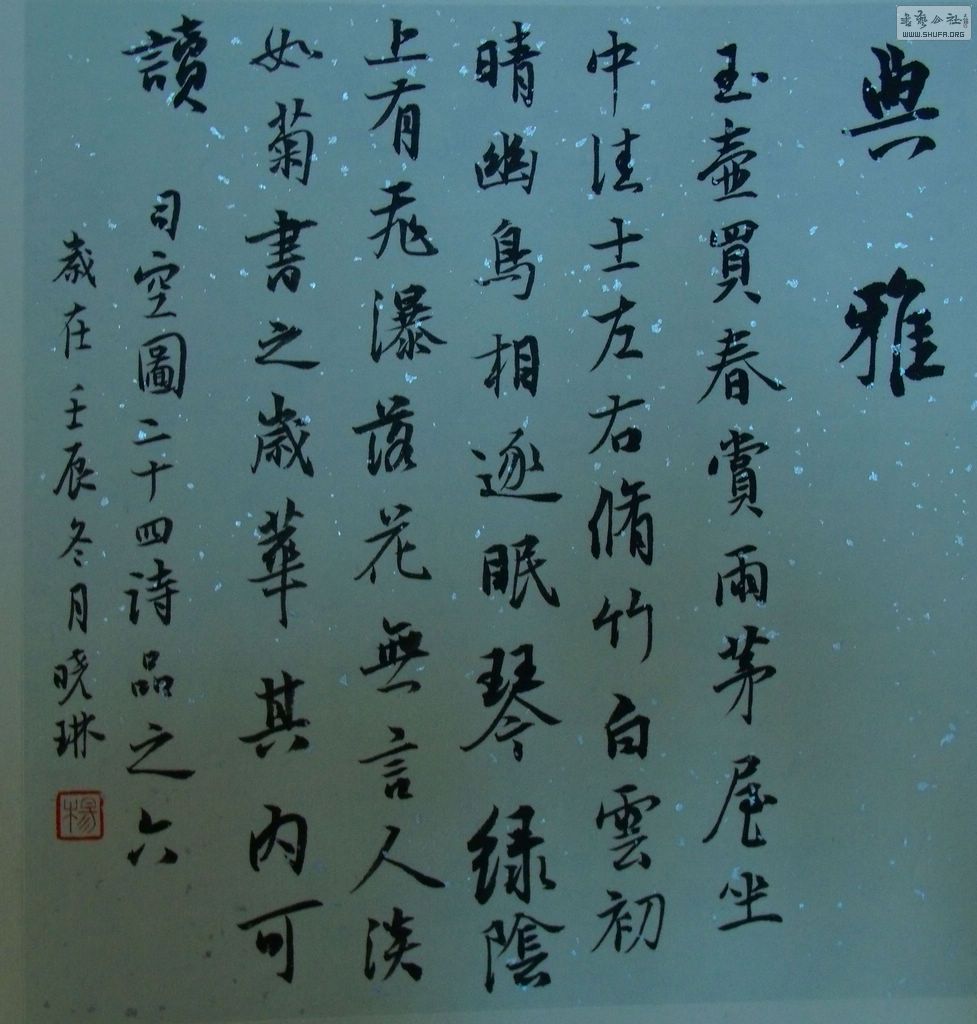 典雅
玉壺買春賞雨茅屋坐
中佳士左右脩竹白雲初
晴幽鳥相逐眠琴綠陰
上有飛瀑落花無言人淡
如菊書之歲華其內可
讀
司空圖二十四詩品之六
歲在壬辰冬月曉琳
楊
WWW.SHUFA.ORG